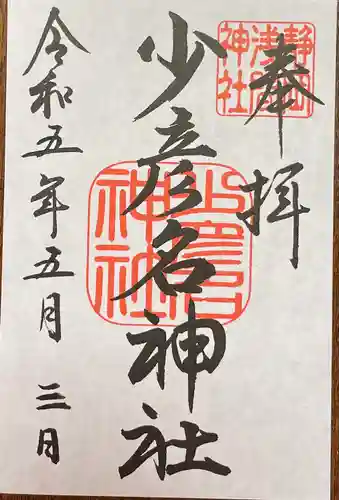 奉拝
静岡浅間神社
少彦名神社
少彦名神社
令和五年五月三日